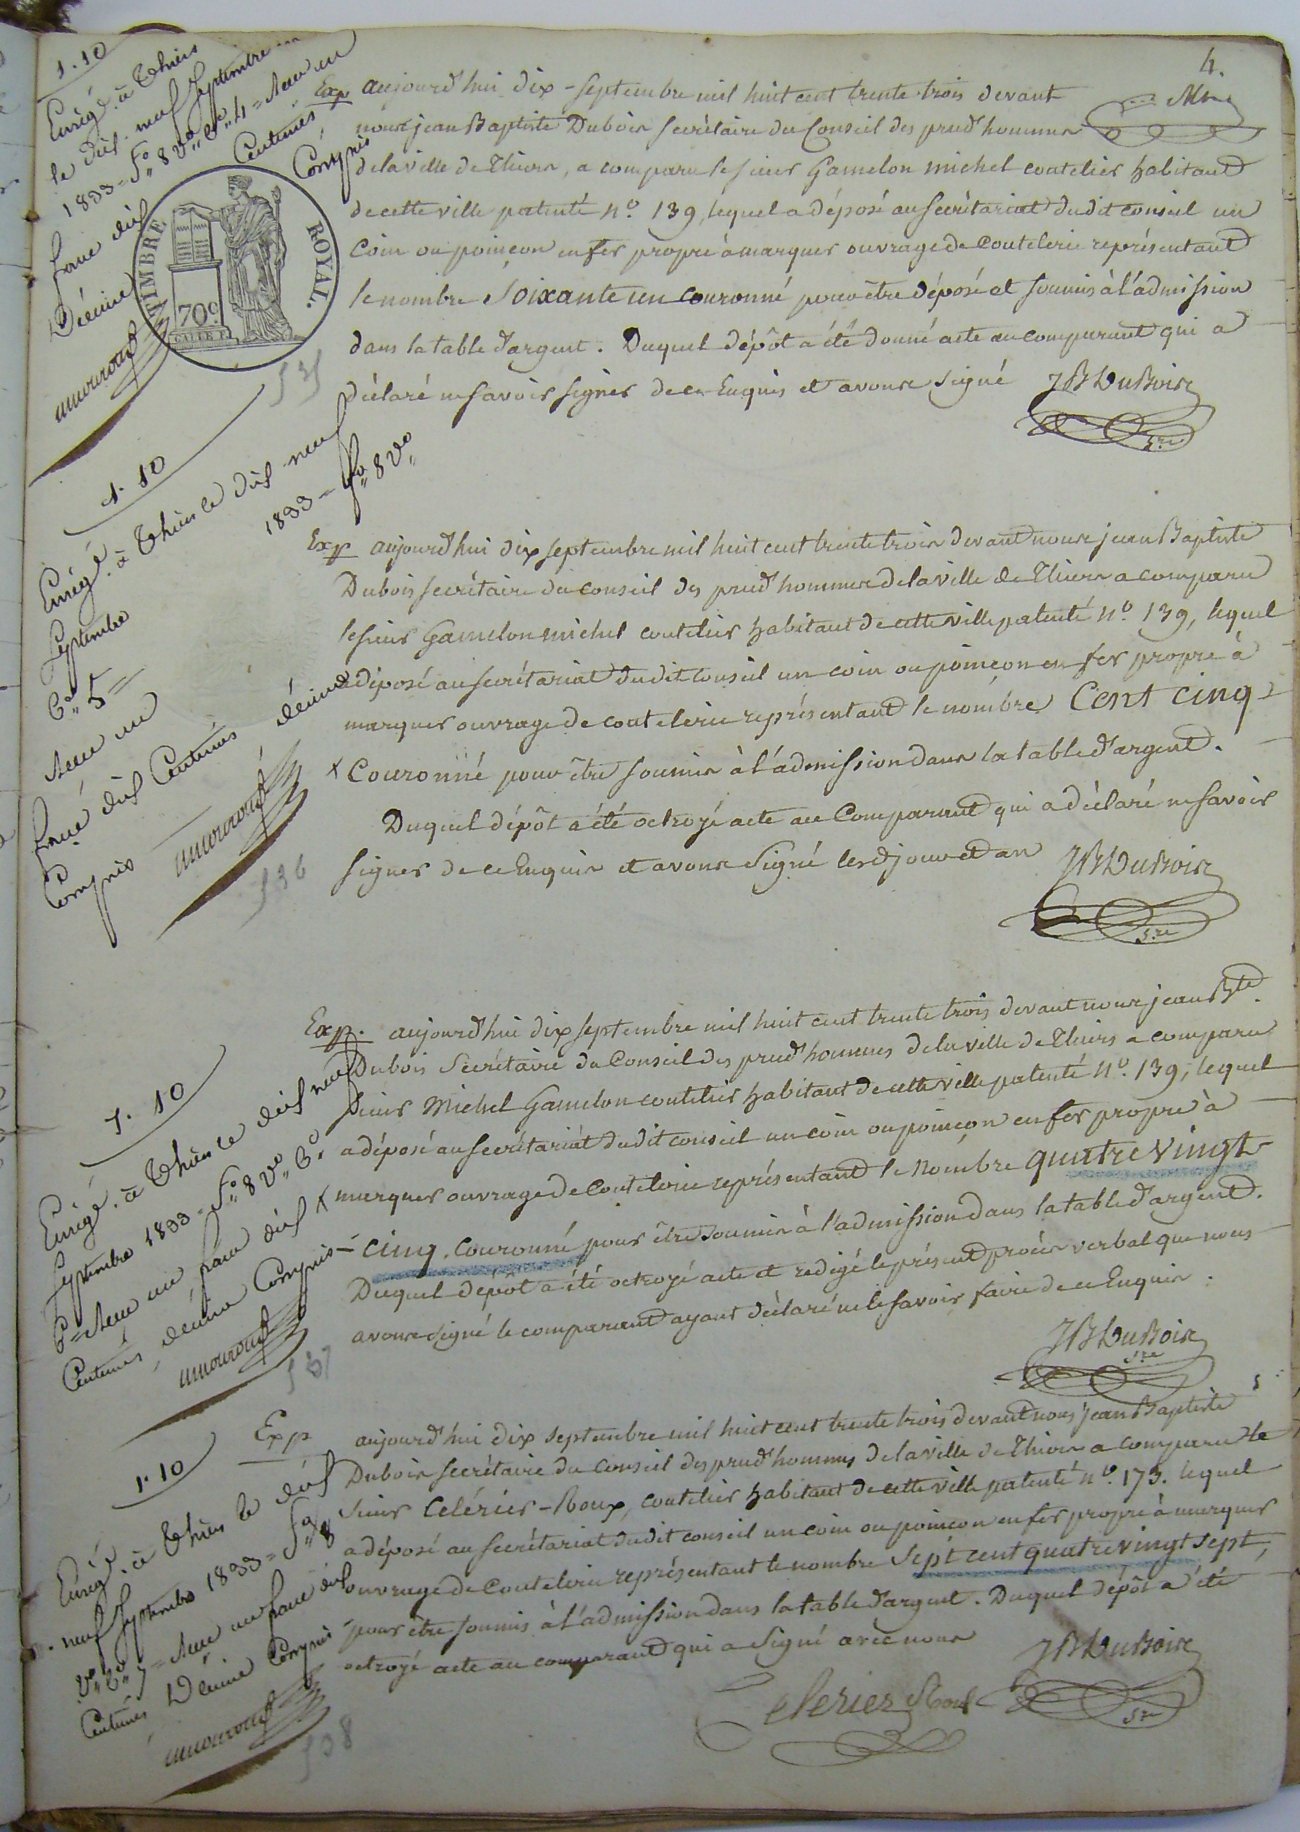 4.
1.10
Enrég.é à Thiers
le dix neuf Septembre
1833 = f.o 8 v.o C.e 4 = Reçu un
franc dix Centimes
Décime Compris
TIMBRE ROYAL.
709
Exp aujourd'hui dix - septembre mil huit cent trente trois devant
nous jean Baptiste Dubois secrétaire du Conseil des prud'hommes
de la ville de Thiers, a comparu le sieur Gamelon michel coutelier habitant
de cette ville patenté N.o 139, lequel a déposé au secrétariat du dit conseil un
Coin ou poinçon en fer propre à marquer ouvrage de Coutelerie représentant
le nombre Soixante un couronné pour être déposé et soumis à l'admission
dans la table d'argent. Duquel dépôt a été donné acte au comparant qui a
déclaré ne savoir signer de ce Enquis et avons signé JB Dubois
S.re
535
1.10
Enrég.é à Thiers le dix neuf
Septembre 1833 = f.o 8 v.o
C.e 5 =
Reçu un
franc dix Centimes décime
Compris
Exp aujourd'hui dix septembre mil huit cent trente trois devant nous jean Baptiste
Dubois secrétaire du conseil des prud'hommes de la ville de Thiers a comparu
le sieur Gamelon michel coutelier habitant de cette ville patenté N.o 139, lequel
a déposé au secrétariat du dit Conseil un coin ou poinçon en fer propre à
marquer ouvrage de coutelerie représentant le nombre Cent cinq
x Couronné pour être soumis à l'admission dans la table d'argent.
Duquel dépôt a été octroyé acte au Comparant qui a déclaré ne savoir
signer de ce Enquis et avons signé lesd jour et an JB Dubois
S.re
536
1.10
Enrég.é à Thiers le dix neuf
Septembre 1833 = f.o 8 v.o C.e
6 = Reçu un franc dix
Centimes, décime Compris
Exp. aujourd'hui dix septembre mil huit cent trente trois devant nous jean B.te
Dubois Secrétaire du Conseil des prud'hommes de la ville de Thiers a comparu
sieur Michel Gamelon coutelier habitant de cette ville patenté N.o 139, lequel
a déposé au secrétariat du dit conseil un coin ou poinçon en fer propre à
x marquer ouvrage de Coutelerie représentant le Nombre quatre vingt
- cinq. Couronné pour être soumis à l'admission dans la table d'argent.
Duquel dépôt a été octroyé acte et redigé le présent procès verbal que nous
avons signé le comparant ayant déclaré ne le savoir faire de ce Enquis.
JB Dubois
S.re
537
1.10
Enrég.é à Thiers le dix
neuf Septembre 1833 = f.o 8
v.o C.e 7 = Reçu un franc dix
Centimes Décime Compris
Exp aujourd'hui dix septembre mil huit cent trente trois devant nous jean Baptiste
Dubois secrétaire du Conseil des prud'hommes de la ville de Thiers a comparu le
sieur Celérier - Roux, coutelier habitant de cette ville patenté n.o 173. lequel
a déposé au secrétariat du dit conseil un coin ou poinçon en fer propre à marquer
ouvrage de Coutelerie représentant le nombre Sept cent quatre vingt sept,
pour être soumis à l'admission dans la table d'argent. Duquel dépôt a été
octroyé acte au comparant qui a signé avec nous JB Dubois
Celerier Roux S.re
538